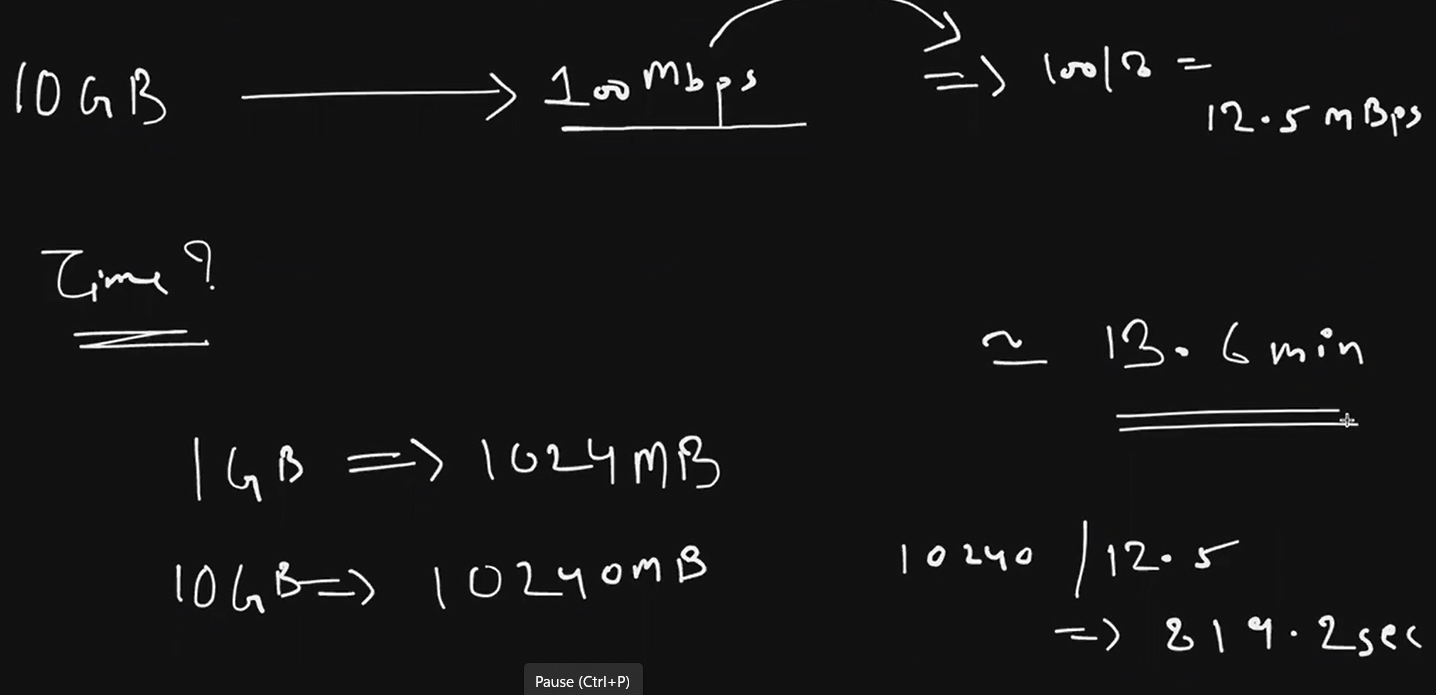 10 GB → 100 Mbps => 100/8 =
12.5 mBps
Time?
≃ 13.6 min
1 GB => 1024 MB
10 GB => 10240 MB
10240 / 12.5
=> 819.2 sec
Pause (Ctrl+P)